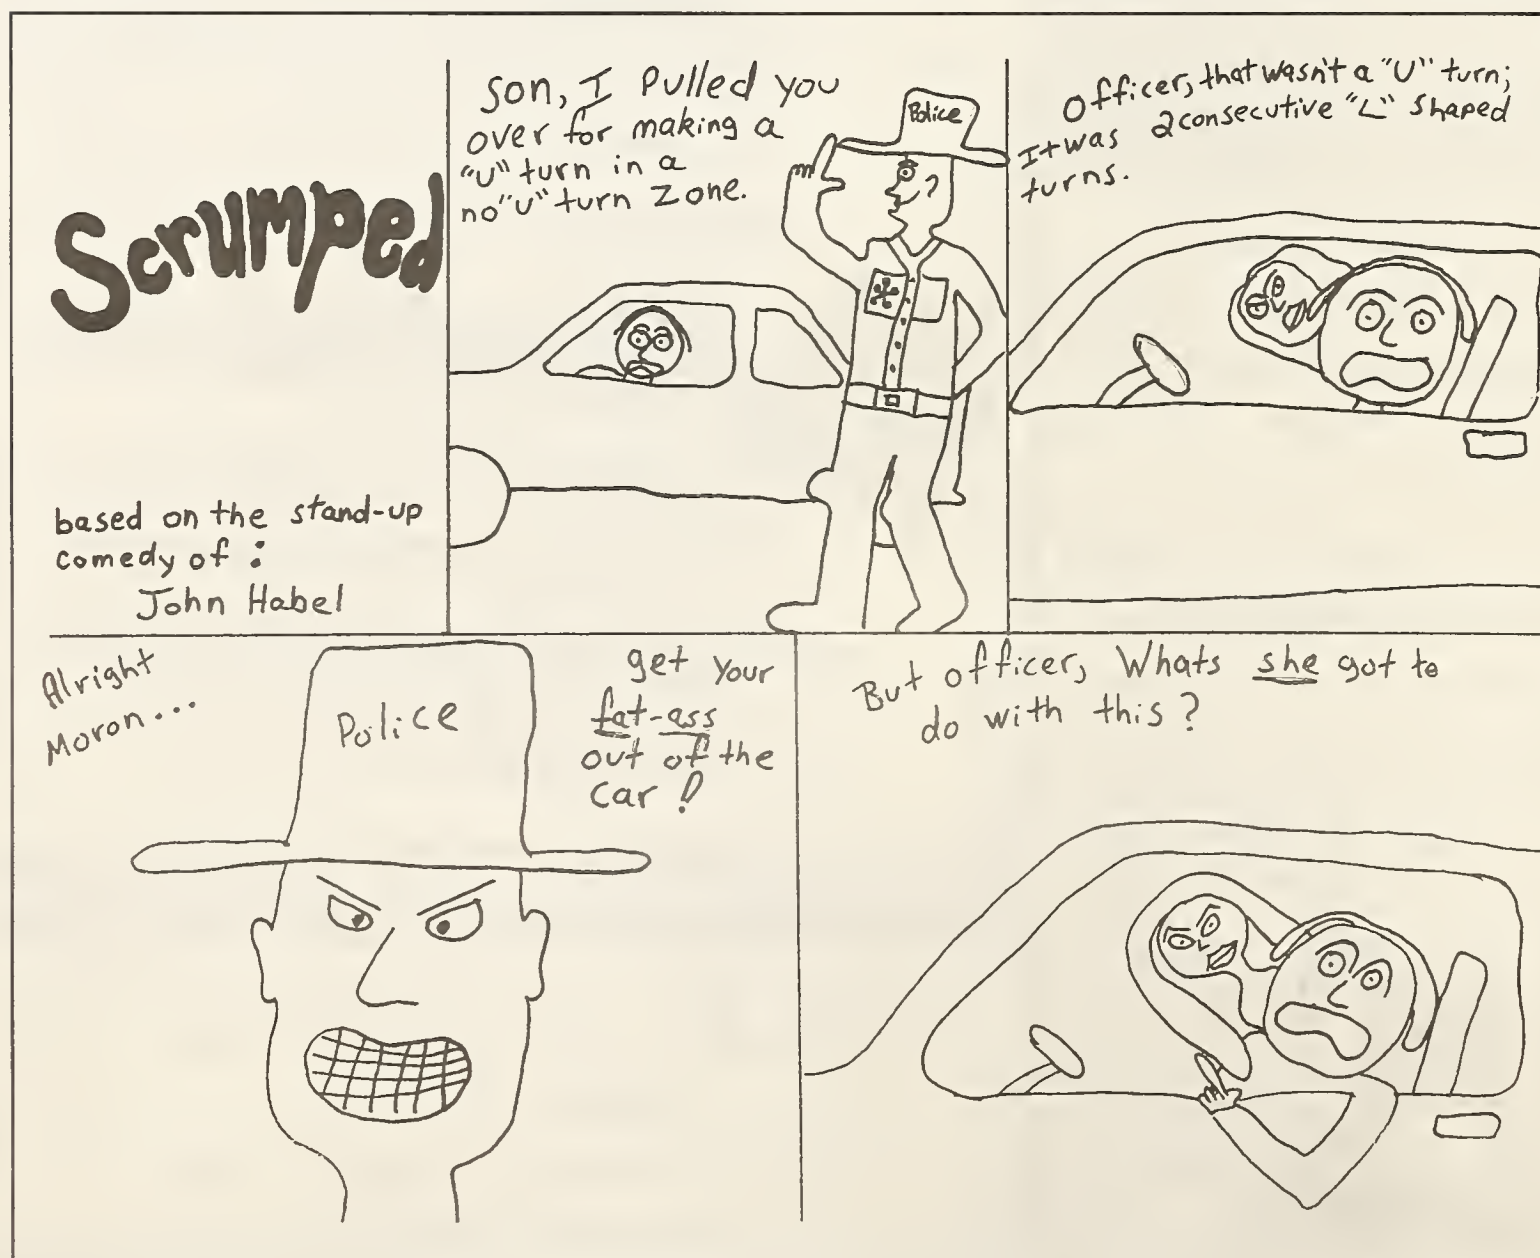 Scrumped
based on the stand-up
comedy of :
John Habel
Son, I Pulled you
over for making a
"U" turn in a
no "U" turn Zone.
Police
Officer, that wasn't a "U" turn;
It was 2 consecutive "L" shaped
turns.
Alright
Moron...
Police
get your
fat-ass
out of the
Car!
But officer, Whats she got to
do with this?